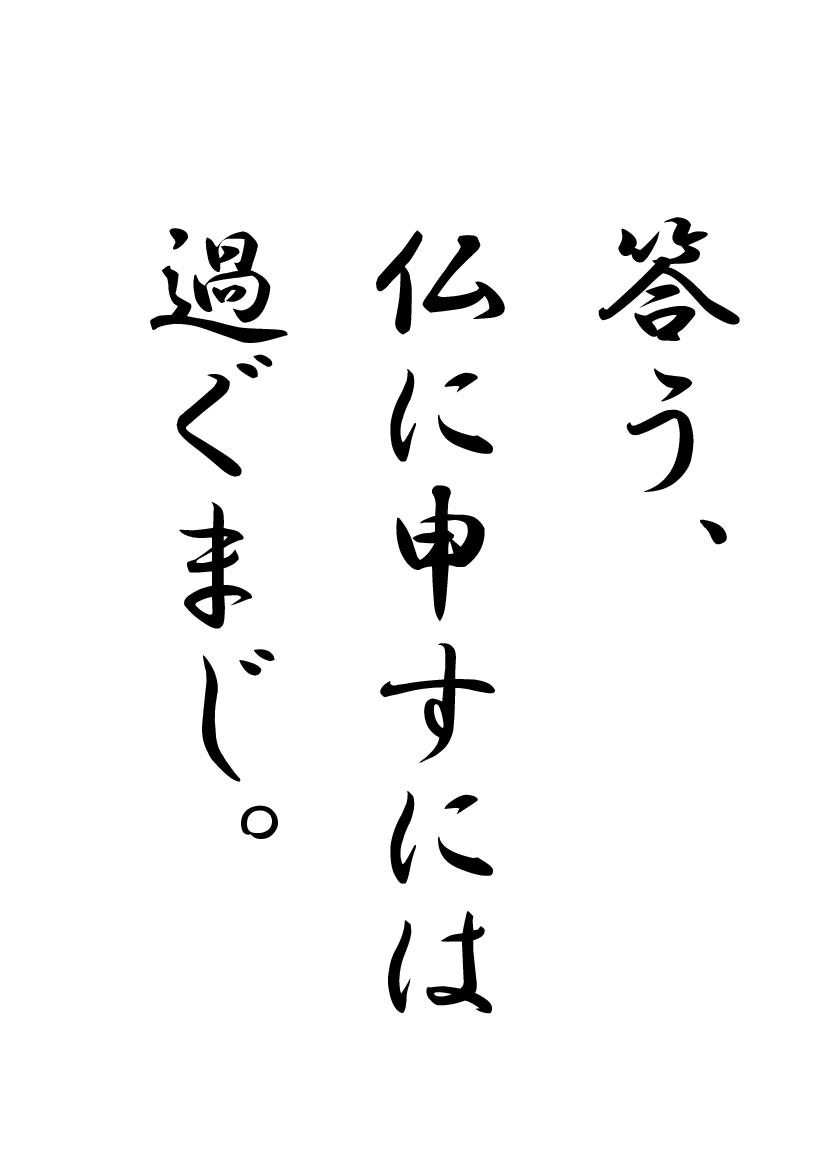 答う、
仏に申すには
過ぐまじ。